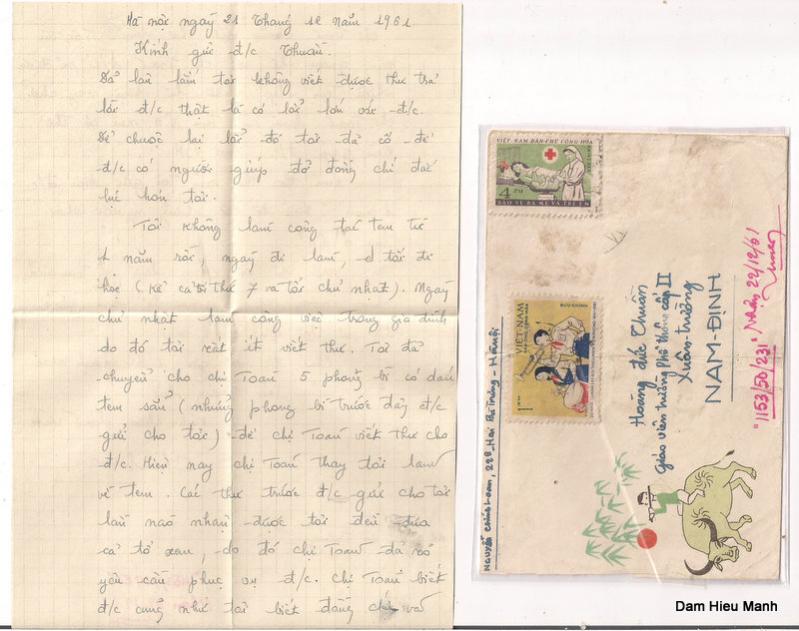 Hà nội ngày 21 Tháng 12 năm 1961
Kính gửi đ/c Thuần.
Đã lâu lắm tôi không viết được thư trả
lời đ/c thật là có lỗi lớn với đ/c.
Để chuộc lại lỗi đó tôi đã cố để
đ/c có người giúp đỡ đồng chí đắc
lực hơn tôi.
Tôi không làm công tác tem từ
1 năm rồi, ngày đi làm, tối đi
học (kể cả thứ 7 và tối chủ nhật). Ngày
chủ nhật làm công việc trong gia đình
do đó tôi rất ít viết thư. Tôi đã
chuyển cho chị Toàn 5 phong bì có dán
tem sẵn (những phong bì trước đây đ/c
gửi cho tôi) để chị Toàn viết thư cho
đ/c. Hiện nay chị Toàn thay tôi làm
về tem. Các thư trước đ/c gửi cho tôi
lần nào nhận được tôi đều đưa
cả tổ xem, do đó chị Toàn đã có
yêu cầu phục vụ đ/c. Chị Toàn biết
đ/c cũng như tôi biết đồng chí và
VIỆT-NAM DÂN-CHỦ CỘNG-HÒA
BƯU CHÍNH
4 XU
BẢO VỆ BÀ MẸ VÀ TRẺ EM
VIỆT-NAM
BƯU CHÍNH
1
NGUYỄN CHÍNH LAM, 228 Hai Bà Trưng - Hànội
Hoàng đức Thuần
Giáo viên trường Phổ thông cấp II
Xuân-trường
NAM-ĐỊNH
"1153/50/231" Nhận 22/12/61
Dam Hieu Manh